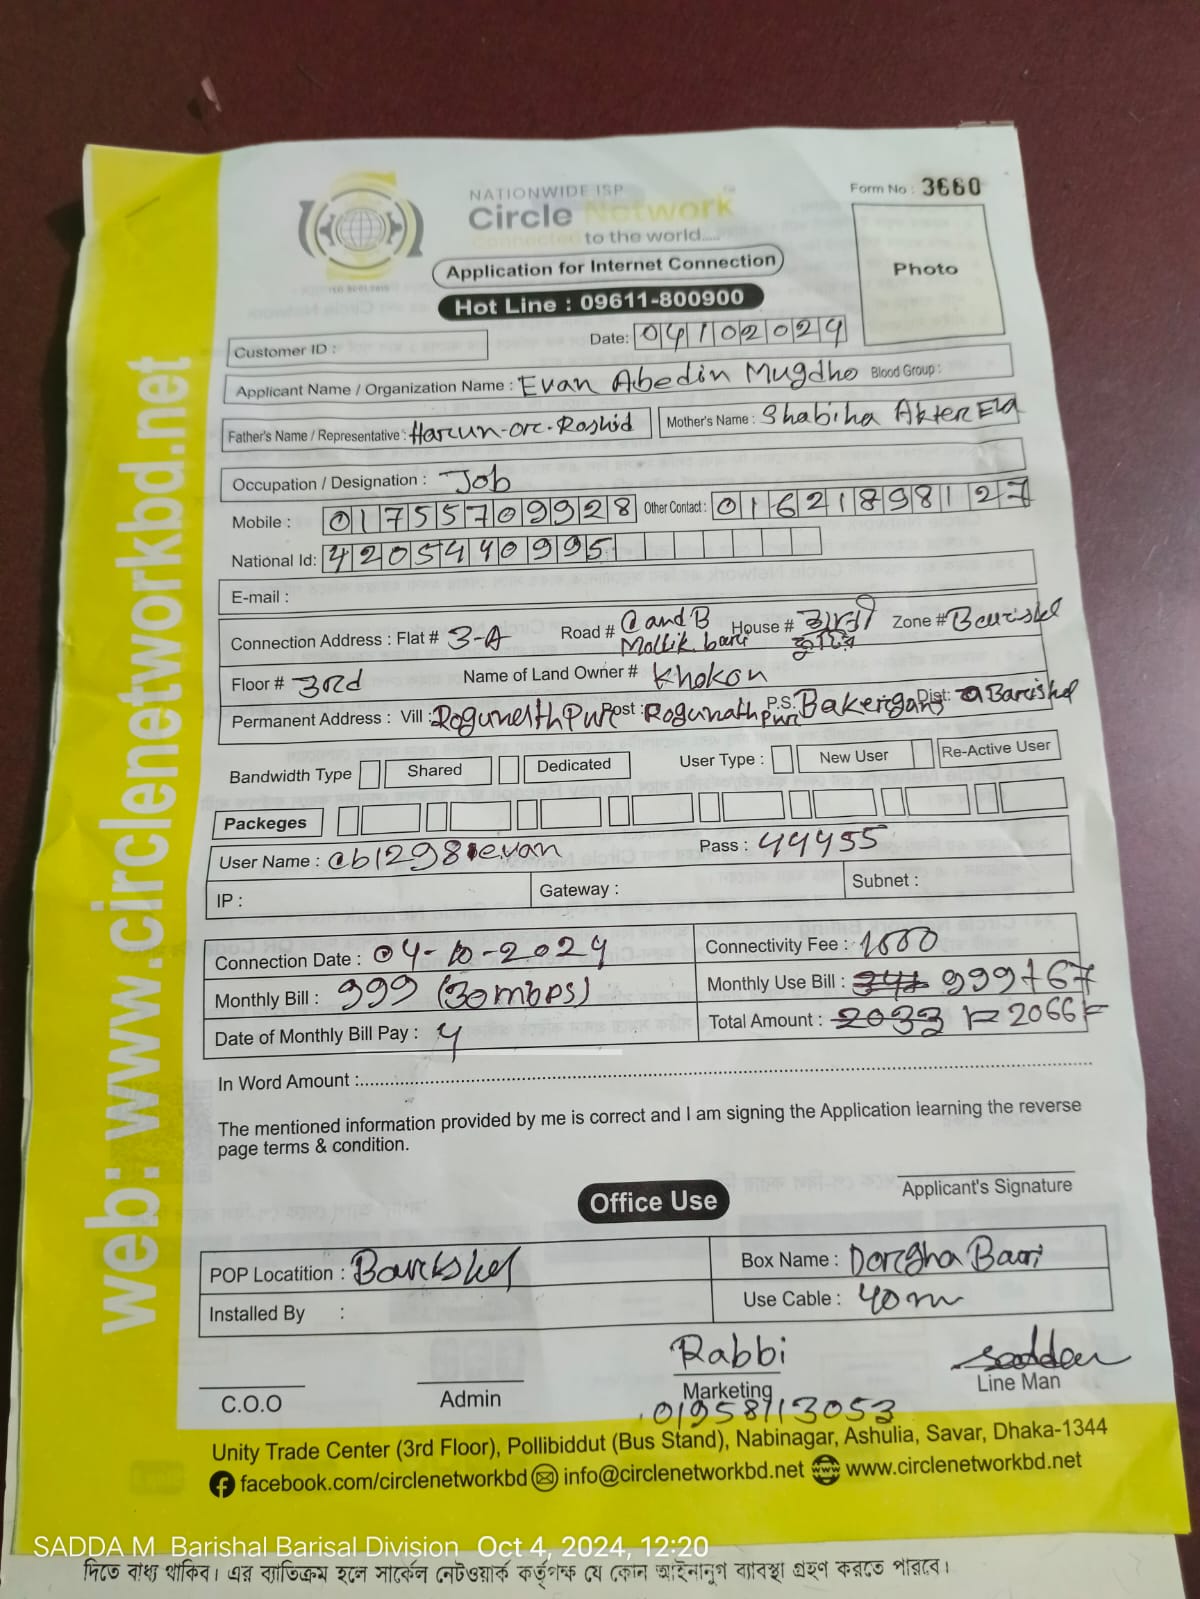 NATIONWIDE ISP
Circle Network
Connected to the world.....
Form No : 3660
Photo
Application for Internet Connection
Hot Line : 09611-800900
Customer ID :
Date: 04102024
Applicant Name / Organization Name : Evan Abedin Mugdho Blood Group :
Father's Name / Representative : Harun-or-Rashid Mother's Name : Shabiha Akter Ela
Occupation / Designation : Job
Mobile : 01755709928 Other Contact : 01621898127
National Id: 4205440995
E-mail :
Connection Address : Flat # 3-A Road # C and B Mollik bari House # কুটির Zone # Barishal
Floor # 3rd Name of Land Owner # Khokon
Permanent Address : Vill : Rogunathpur Post : Rogunathpur P.S: Bakerganj Dist: Barishal
Bandwidth Type Shared Dedicated User Type : New User Re-Active User
Packeges
User Name : cb1298evan Pass : 44455
IP : Gateway : Subnet :
Connection Date : 04-10-2024 Connectivity Fee : 1000
Monthly Bill : 999 (30mbps) Monthly Use Bill : 999+67
Date of Monthly Bill Pay : 4 Total Amount : 2033 2066
In Word Amount :
The mentioned information provided by me is correct and I am signing the Application learning the reverse
page terms & condition.
Applicant's Signature
Office Use
POP Locatition : Barishal Box Name : Dorgha Bari
Installed By : Use Cable : 40m
Rabbi saddam
C.O.O Admin Marketing Line Man
01958113053
Unity Trade Center (3rd Floor), Pollibiddut (Bus Stand), Nabinagar, Ashulia, Savar, Dhaka-1344
facebook.com/circlenetworkbd info@circlenetworkbd.net www.circlenetworkbd.net
web: www.circlenetworkbd.net
SADDA M Barishal Barisal Division Oct 4, 2024, 12:20
দিতে বাধ্য থাকিব। এর ব্যতিক্রম হলে সার্কেল নেটওয়ার্ক কর্তৃপক্ষ যে কোন আইনানুগ ব্যবস্থা গ্রহণ করতে পারবে।